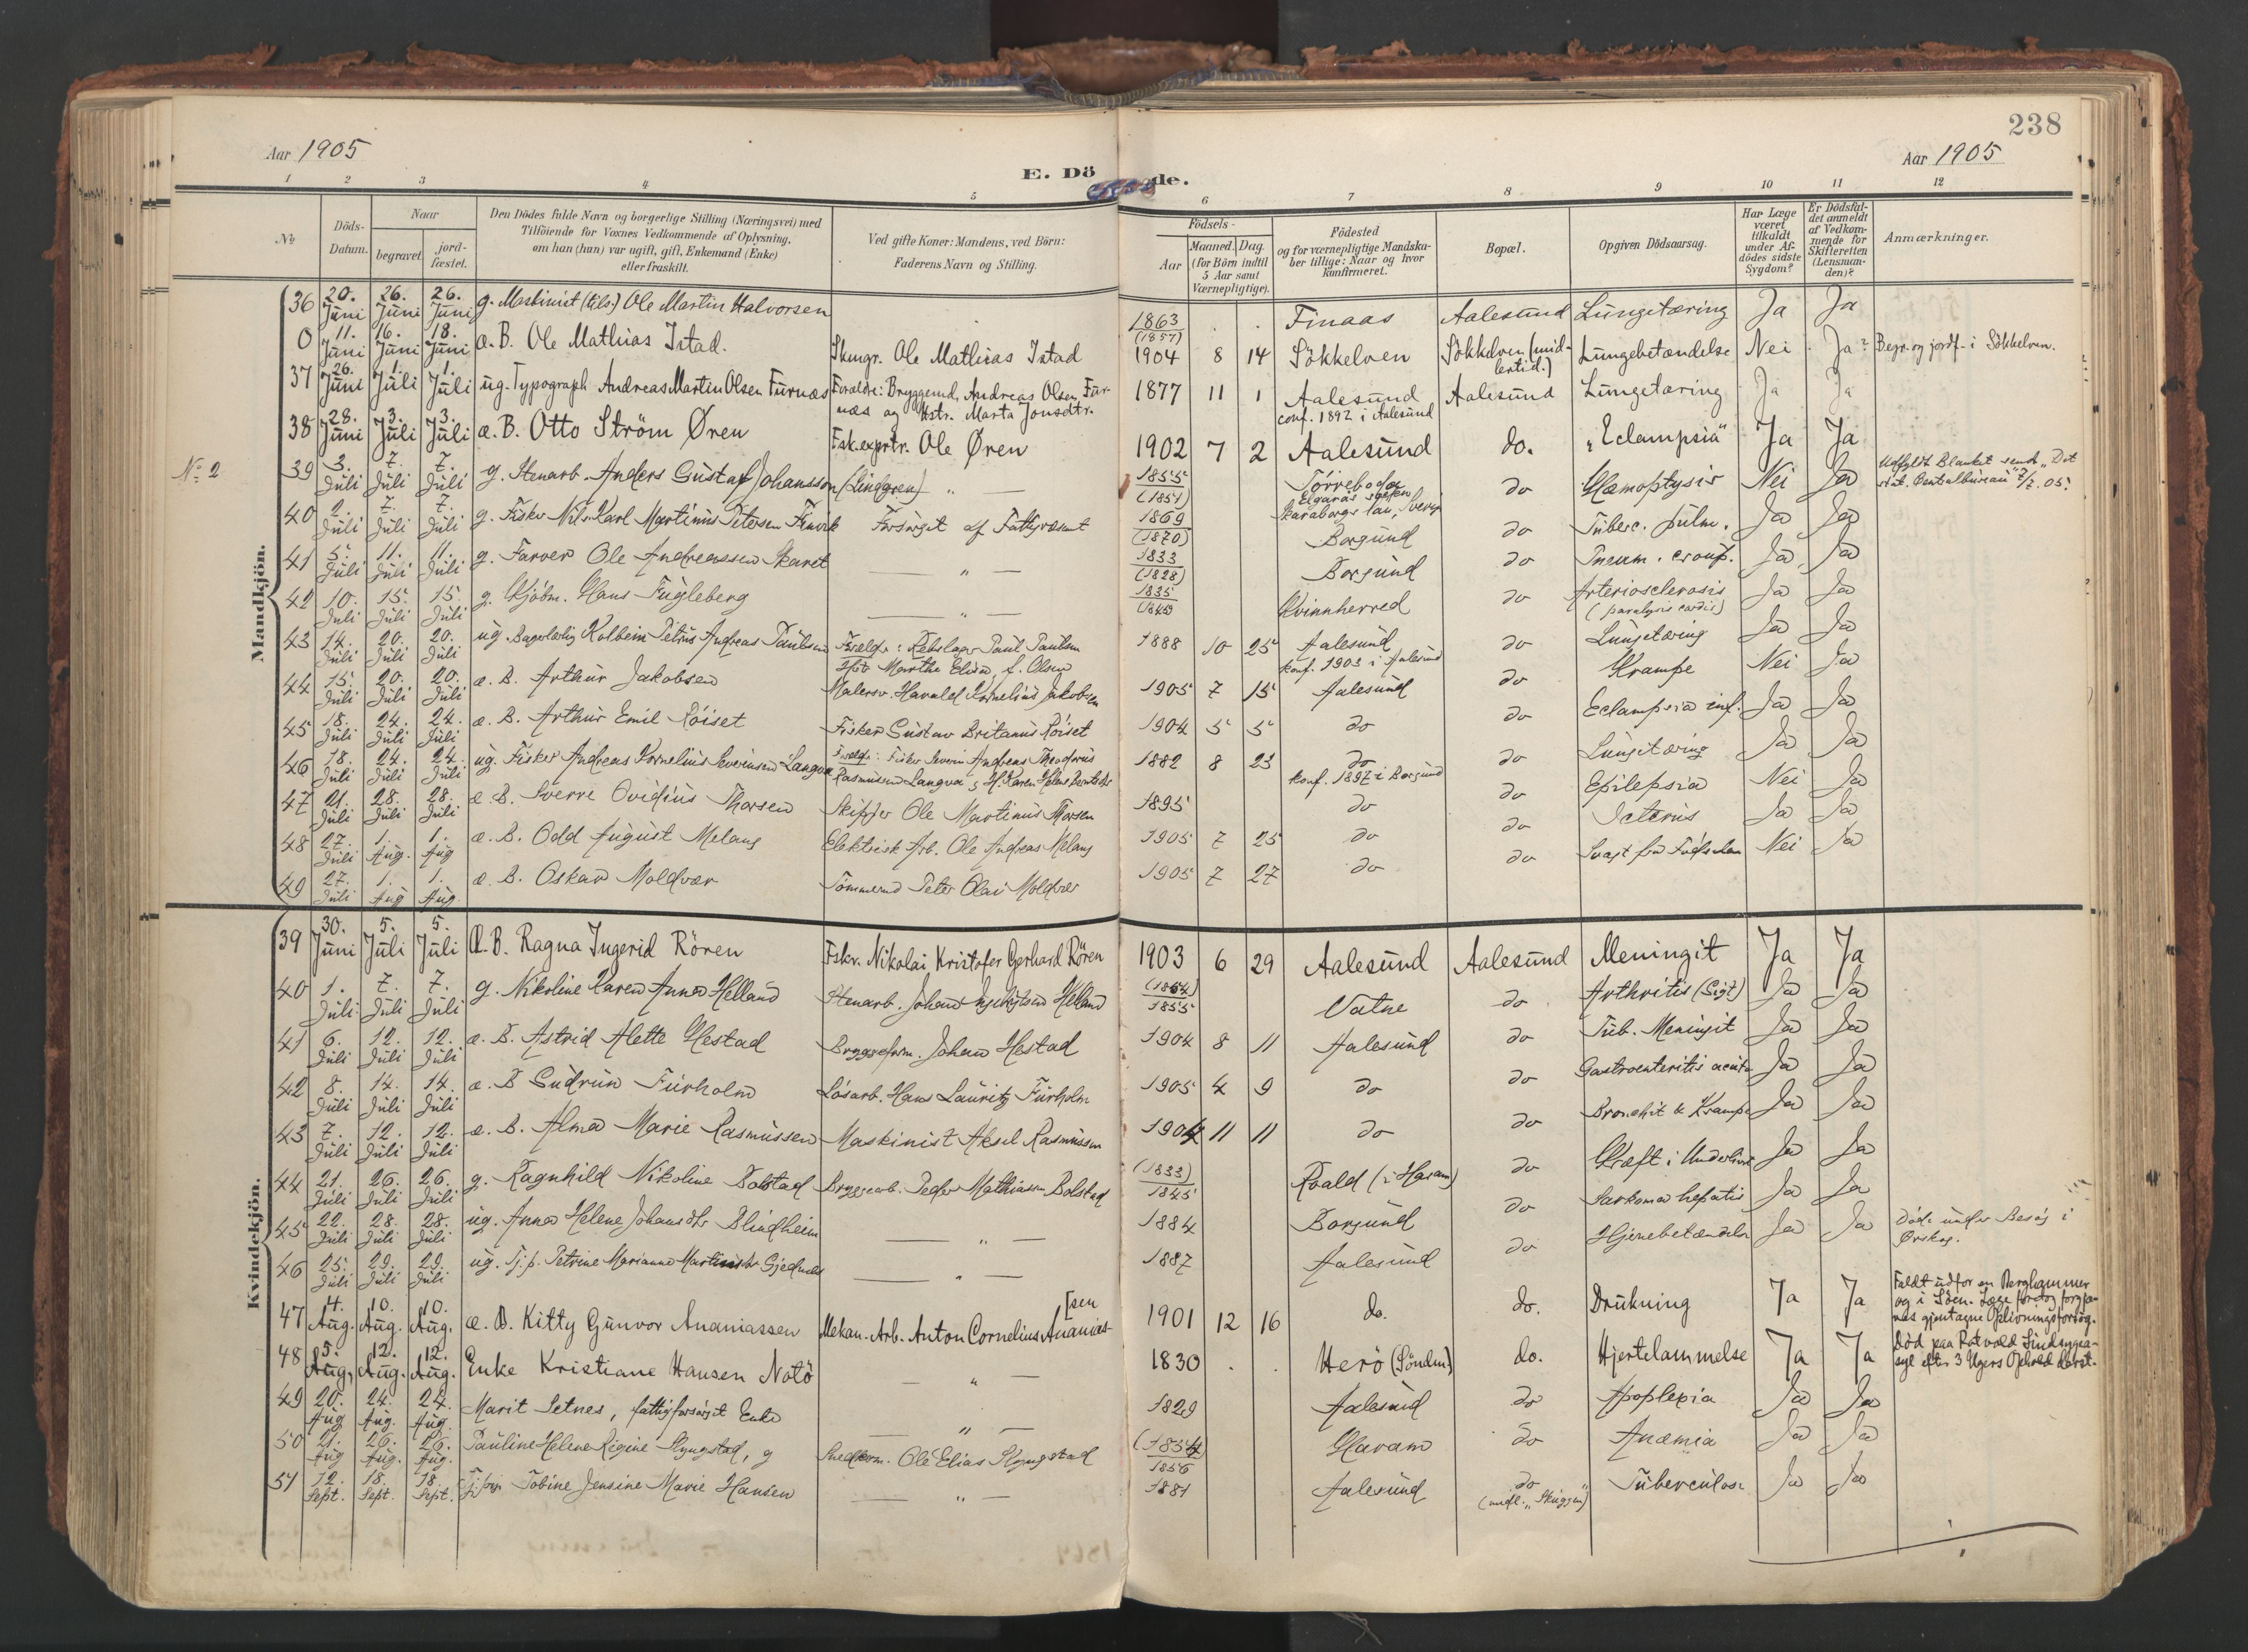 238
Aar 1905
Aar 1905
E. Dö de.
1 2 3 4 5 6 7 8 9 10 11 12
No
Döds-
Datum.
Naar
begravet.
jord-
fæstet.
Den Dödes fulde Navn og borgerlige Stilling (Næringsvei) med
Tilföiende for Voxnes Vedkommende af Oplysning,
om han (hun) var ugift, gift, Enkemand (Enke)
eller fraskilt.
Ved gifte Koner: Mandens, ved Börn:
Faderens Navn og Stilling.
Födsels-
Aar
Maaned. Dag.
(for Börn indtil
5 Aar samt
Værnepligtige).
Födested
og for værnepligtige Mandska-
ber tillige: Naar og hvor
konfirmeret.
Bopæl.
Opgiven Dödsaarsag.
Har Læge
været
tilkaldt
under Af-
dödes sidste
Sygdom?
Er Dödsfal-
det anmeldt
af Vedkom-
mende for
Skifteretten
(Lensman-
den)?
Anmærkninger.
Mandkjön.
36 20. Juni 26. Juni 26. Juni g. Maskinist (tils.) Ole Martin Halvorsen 1863 (1857) Finaas Aalesund Lungetæring Ja Ja
0 11. Juni 16. Juni 18. Juni æ. B. Ole Mathias Istad. Skmgr. Ole Mathias Istad 1904 8 14 Sökkelven Sökkelven (mid-
lertid.) Lungebetændelse Nei Ja? Begr. og jordf. i Sökkelven.
37 26. Juni 1. Juli 1. Juli ug. Typograph Andreas Martin Olsen Furnæs Foraldre: Bryggemd. Andreas Olsen Fur-
næs og Hstr. Marta Jonsdtr. 1877 11 1 Aalesund Aalesund Lungetæring Ja Ja
conf. 1892 i Aalesund
38 28. Juni 3. Juli 3. Juli æ. B. Otto Ström Øren Fsk.exprtr. Ole Øren 1902 7 2 Aalesund do. "Eclampsia" Ja Ja
No 2 39 3. Juli 7. Juli 7. Juli g. Stenarb. Anders Gustaf Johansson (Lindgren) " 1855 (1851) Törreboda
Elgarås socken
Skaraborgs län, Sverig do Hæmoptysis Nei Ja Udfyldt Blanket sendt "Det
stat. Centralbureau" 7/7. 05.
40 2. Juli 7. Juli 7. Juli g. Fisker Nils Karl Martinus Petersen Finvik Forsörget af Fattigvæsenet 1869 (1870) Borgund do Tuberc. pulm. Ja Ja
41 5. Juli 11. Juli 11. Juli g. Farver Ole Andreassen Skaret " 1833 (1828) Borgund do Pneum. croup. Ja Ja
42 10. Juli 15. Juli 15. Juli g. Kjöbm. Hans Fugleberg " 1835 Kvinnherred do Arteriosclerosis
(paralysis cordis) Ja Ja
43 14. Juli 20. Juli 20. Juli ug. Bagerlærling Kolbein Petrus Andreas Paulsen Forældr: Rebslager Paul Paulsen
Hst Marthe Elisa, f. Olsen 1888 10 25 Aalesund
konf. 1903 i Aalesund do Lungetæring Ja Ja
44 15. Juli 20. Juli 20. Juli æ. B. Arthur Jakobsen Malersv. Harald Kornelius Jakobsen 1905 7 15 Aalesund do Krampe Nei Ja
45 18. Juli 24. Juli 24. Juli æ. B. Arthur Emil Röiset Fisker Gustav Britanus Röiset 1904 5 5 do do Eclampsia inf. Ja Ja
46 18. Juli 24. Juli 24. Juli ug. Fisker Andreas Kornelius Severinsen Langva Foreldr: Fisker Severin Andreas Theodorus
Rasmussen Langva 1882 8 23 do
konf. 1897 i Borgund do Lungetæring Ja Ja
47 21. Juli 28. Juli 28. Juli æ. B. Sverre Ovidius Thorsen Skipper Ole Martinus Thorsen 1895 do do Epilepsia Nei Ja
48 27. Juli 1. Aug. 1. Aug æ. B. Odd August Melang Elektrisk Arb. Ole Andreas Melang 1905 7 25 do do Icterus Ja Ja
49 27. Juli 1. Aug 1. Aug æ. B. Oskar Moldvær Tömmermd Peter Olai Moldvær 1905 7 27 do do Svagt fra Födselen Nei Ja
Kvindekjön.
39 30. Juni 5. Juli 5. Juli Æ. B. Ragna Ingerid Rören Fskr. Nikolai Kristofer Gerhard Rören 1903 6 29 Aalesund Aalesund Meningit Ja Ja
40 1. Juli 7. Juli 7. Juli g. Nikoline Karen Anna Helland Stenarb. Johan Helland (1864) 1855 Vatne do Arthritis (Gigt) Ja Ja
41 6. Juli 12. Juli 12. Juli æ. B. Astrid Alette Hestad Bryggeform. Johan Hestad 1904 8 11 Aalesund do Tub. Meningit Ja Ja
42 8. Juli 14. Juli 14. Juli æ. B Gudrun Furholm Lösarb. Hans Lauritz Furholm 1905 4 9 do do Gastroenteritis acuta Ja Ja
43 7. Juli 12. Juli 12. Juli æ. B. Alma Marie Rasmussen Maskinist Aksel Rasmussen 1904 11 11 do do Bronchit & Krampe Ja Ja
44 21. Juli 26. Juli 26. Juli g. Ragnhild Nikoline Bolstad Bryggearb. Peder Mathiassen Bolstad (1833) 1845 Roald (i Haram) do Kræft i Underlivet Ja Ja
45 22. Juli 28. Juli 28. Juli ug. Anna Helene Johansdtr Blindheim " 1884 Borgund do Sarkoma hepatis Ja Ja
46 25. Juli 29. Juli 29. Juli ug. Tj.p. Petrine Marianne Martinsdtr Gjednæs " 1887 Aalesund do Hjernebetændelse Ja Ja Döde under Besög i
Ørskog.
47 4. Aug. 10. Aug. 10. Aug. æ. B. Kitty Gunvor Ananiassen Mekan. Arb. Anton Cornelius Ananias-
[sen 1901 12 16 do. do. Drukning Ja Ja Faldt udfor en Berghammer
og i Söen. Læge foretog forgjæ-
ves gjentagne Oplivningsforsög.
48 5. Aug. 12. Aug. 12. Aug. Enke Kristiane Hansen Notö " 1830 Herö (Söndm) do. Hjertelammelse Ja Ja Död paa Rotvold Sindsygea-
syl efter 3 Ugers Ophold derst.
49 20. Aug 24. Aug. 24. Aug. Marit Setnes, fattigforsörget Enke " 1829 Aalesund do Apoplexia Ja Ja
50 21. Aug 26. Aug. 26. Aug. Pauline Helene Regine Slyngstad, g Snedkerm. Ole Elias Slyngstad (1854) 1856 Haram do Anæmia Ja Ja
51 12. Sept. 18. Sept. 18. Sept. Tobine Jensine Marie Hansen " 1881 Aalesund do
(midl. "Skuggen") Tuberculose Ja Ja